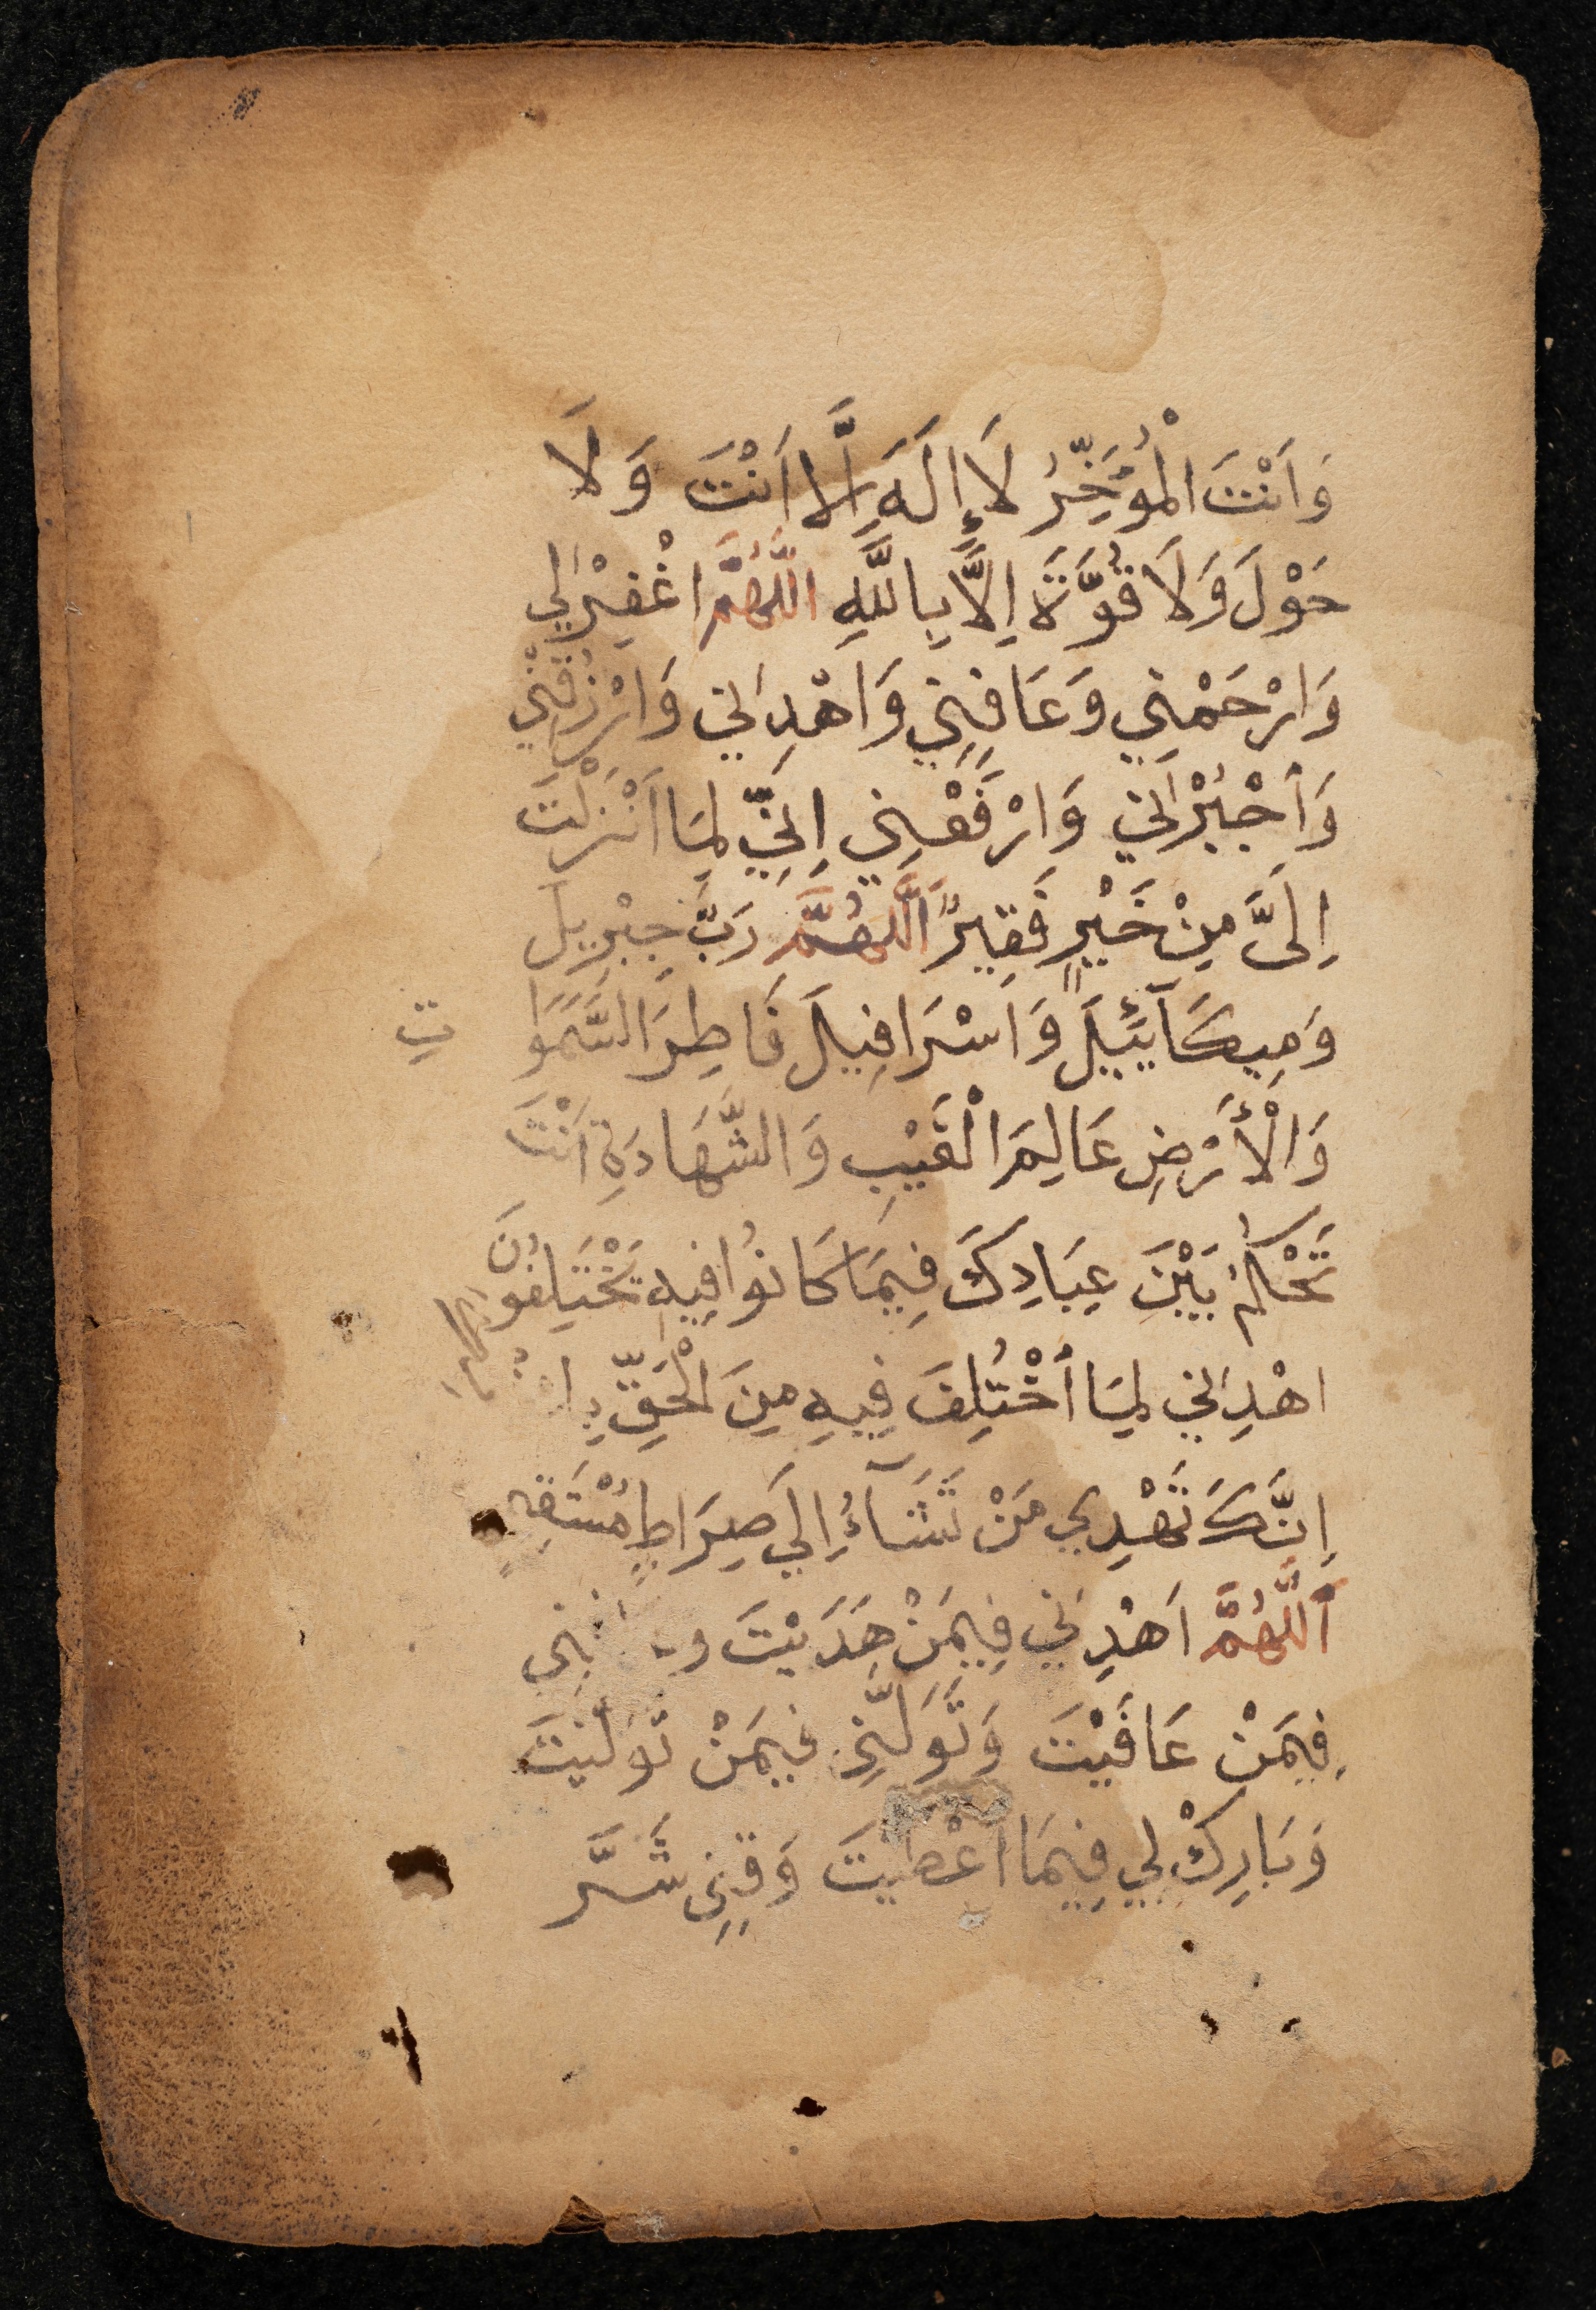 وَاَنْتَ الْمُؤَخِّرُ لَاإِلَهَ اِلَّا اَنْتَ وَلَا
حَوْلَ وَلَا قُوَّةَ اِلَّا بِاللَّهِ اللَّهُمَّ اغْفِرْلِي
وَارْحَمْنِي وَعَافِنِي وَاهْدِنِي وَارْزُقْنِي
وَاجْبُرْنِي وَارْفَعْنِي اِنِّي لِمَا اَنْزَلْتَ
اِلَىَّ مِنْ خَيْرٍ فَقِيرٌ اَللَّهُمَّ رَبَّ جِبْرِيلَ
وَمِيكَآئِيلَ وَاسْرَافِيلَ فَاطِرَ السَّمَوَاتِ
وَالْأَرْضِ عَالِمَ الْغَيْبِ وَالشَّهَادَةِ اَنْتَ
تَحْكُمُ بَيْنَ عِبَادِكَ فِيمَا كَانُوا فِيهِ يَخْتَلِفُونَ
اهْدِنِي لِمَا اخْتُلِفَ فِيهِ مِنَ الْحَقِّ
اِنَّكَ تَهْدِي مَنْ تَشَآءُ اِلَي صِرَاطٍ
اَللَّهُمَّ اَهْدِنِي فِيمَنْ هَدَيْتَ
فِيمَنْ عَافَيْتَ وَتَوَلَّنِي فِيمَنْ تَوَلَّيْتَ
وَبَارِكْ لِي فِيمَا اَعْطَيْتَ وَقِنِي شَرَّ